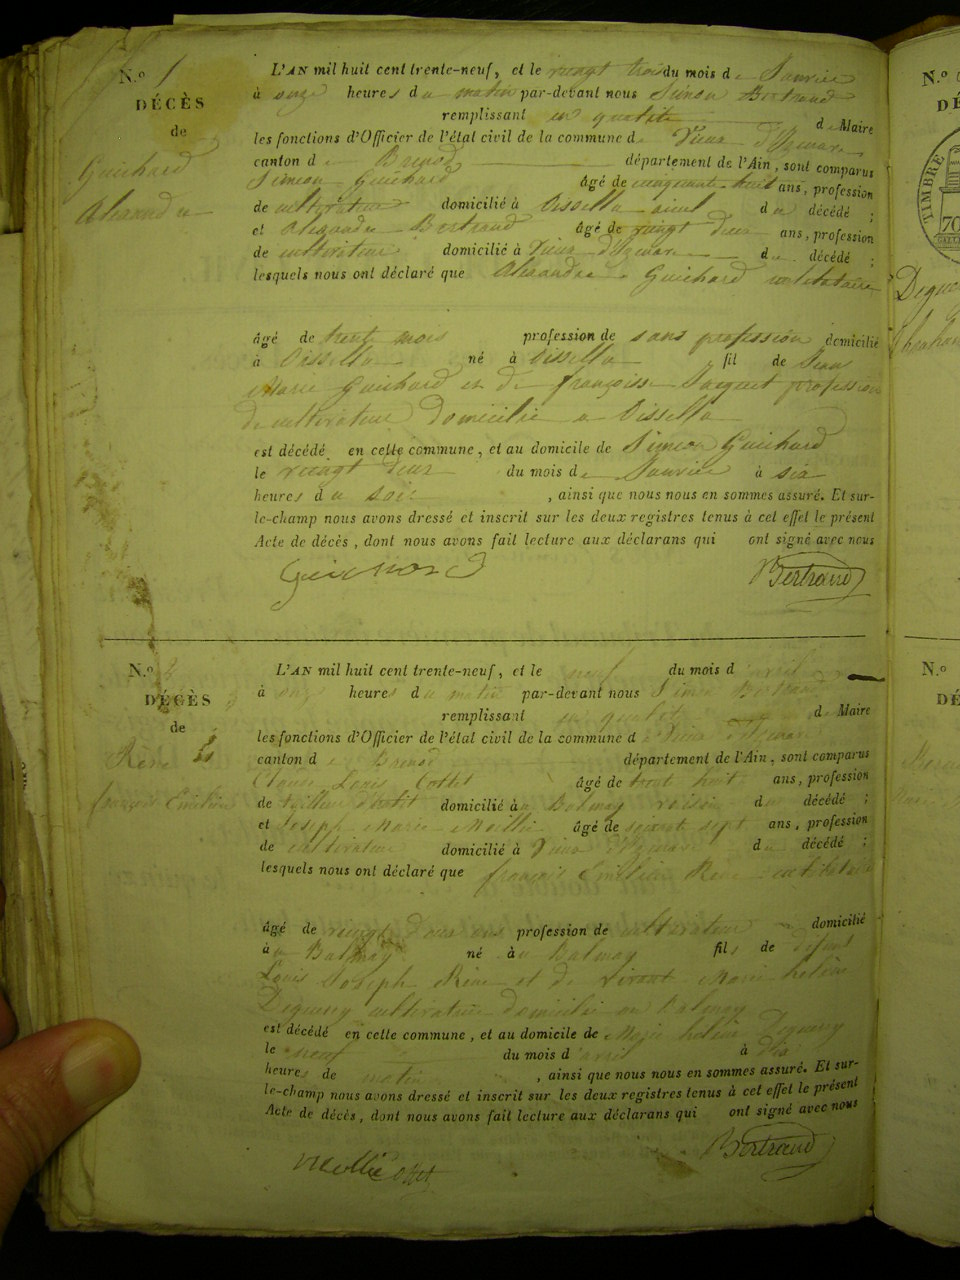 N.o 1
DÉCÈS
de
Guichard
Alexandre
L'AN mil huit cent trente-neuf, et le vingt trois du mois de Janvier
à onze heures du matin par-devant nous Simon Bertrand
remplissant en qualité de Maire
les fonctions d'Officier de l'état civil de la commune de Vieux d'Izenave
canton de Brenod département de l'Ain, sont comparus
Simeon Guichard âgé de cinquante huit ans, profession
de cultivateur domicilié à Oissella aieul du décédé ;
et Alexandre Bertrand âgé de vingt deux ans, profession
de cultivateur domicilié à Vieux d'Izenave du décédé ;
lesquels nous ont déclaré que Alexandre Guichard
âgé de trente mois profession de sans profession domicilié
à Oissella né à Oissella fil de Jean
Marie Guichard et de françoise Jacquet profession
de cultivateur domicilié a Oissella
est décédé en cette commune, et au domicile de Simeon Guichard
le vingt deux du mois de Janvier à six
heures du soir , ainsi que nous nous en sommes assuré. Et sur-
le-champ nous avons dressé et inscrit sur les deux registres tenus à cet effet le présent
Acte de décès, dont nous avons fait lecture aux déclarans qui ont signé avec nous
Guichard Bertrand
N.o 2
DÉCÈS
de
Rène
françois Emilien
L'AN mil huit cent trente-neuf, et le neuf du mois d avril
à onze heures du matin par-devant nous Simon Bertrand
remplissant en qualité de Maire
les fonctions d'Officier de l'état civil de la commune de Vieux d'Izenave
canton de Brenod département de l'Ain, sont comparus
Claude Louis Cottet âgé de trent huit ans, profession
de tailleur d'habit domicilié à au Balmay voisin du décédé ;
et Joseph Marie Mollie âgé de sept ans, profession
de cultivateur domicilié à Vieux d'Izenave du décédé ;
lesquels nous ont déclaré que françois Emilien Rène
âgé de vingt ans profession de cultivateur domicilié
à au Balmay né à au Balmay fils de défunt
Louis Joseph Rène et de vivant Marie helène
cultivateur domicilié au Balmay
est décédé en cette commune, et au domicile de helène
le neuf du mois d avril à
heures de matin , ainsi que nous nous en sommes assuré. Et sur-
le-champ nous avons dressé et inscrit sur les deux registres tenus à cet effet le présent
Acte de décès, dont nous avons fait lecture aux déclarans qui ont signé avec nous
Mollie Cottet Bertrand
N.o
DÉ
TIMBRE
70
N.o
DÉ